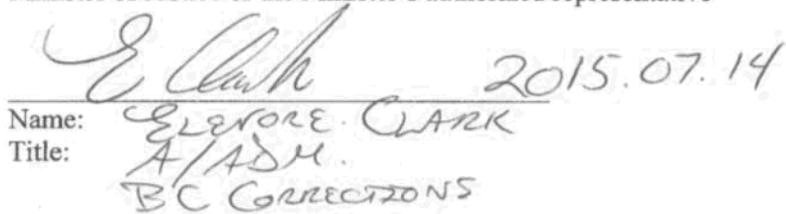 E Clark 2015.07.14
Name: ELENORE CLARK
Title: A/ADM.
BC CORRECTIONS